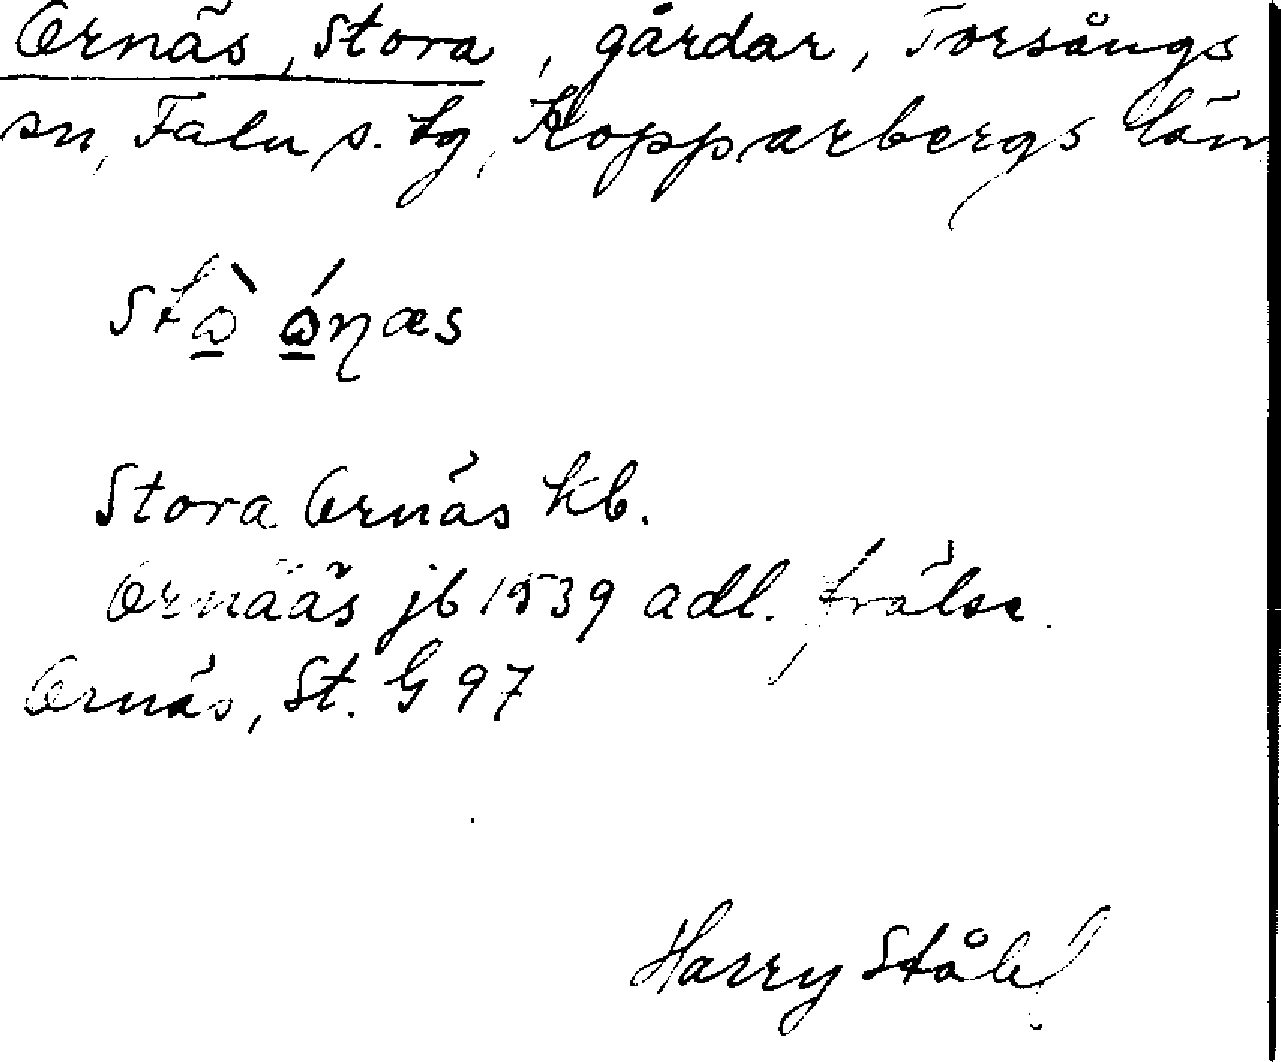 Ornäs, Stora, gårdar, Torsångs
sn, Falu s. tg, Kopparbergs län
Stora Ornäs kb.
Ornääs jb 1539 adl. frälse.
Ornäs, St. G 97
Harry Ståhl